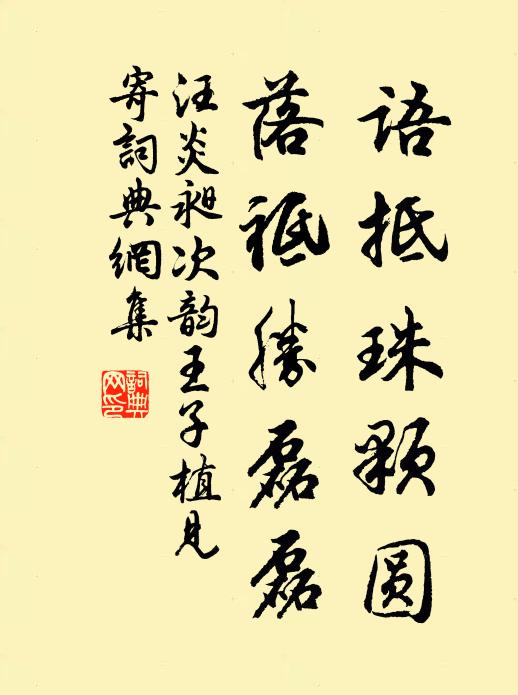 语抵珠颗圆
落祗勝磊磊
汪炎昶次韵王子植見
寄詞典網集
詞典网印